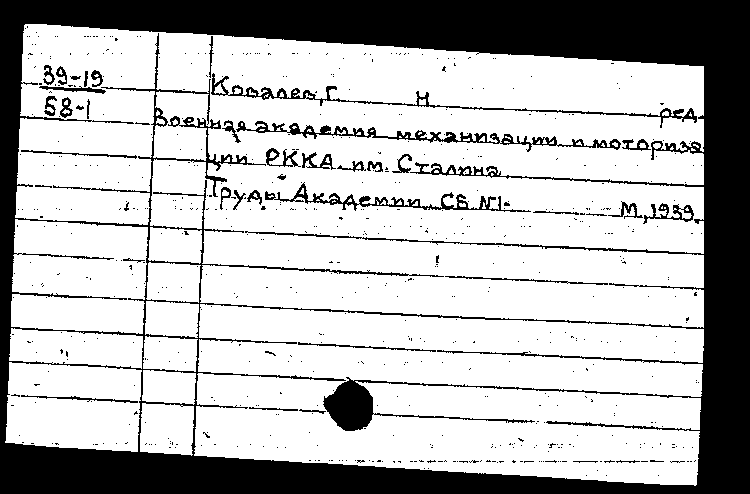 39-19
58-1
Ковалев, Г. Н. ред.
Военная академия механизации и моториза
ции РККА. им. Сталина.
Труды Академии. Сб №1- М., 1939.